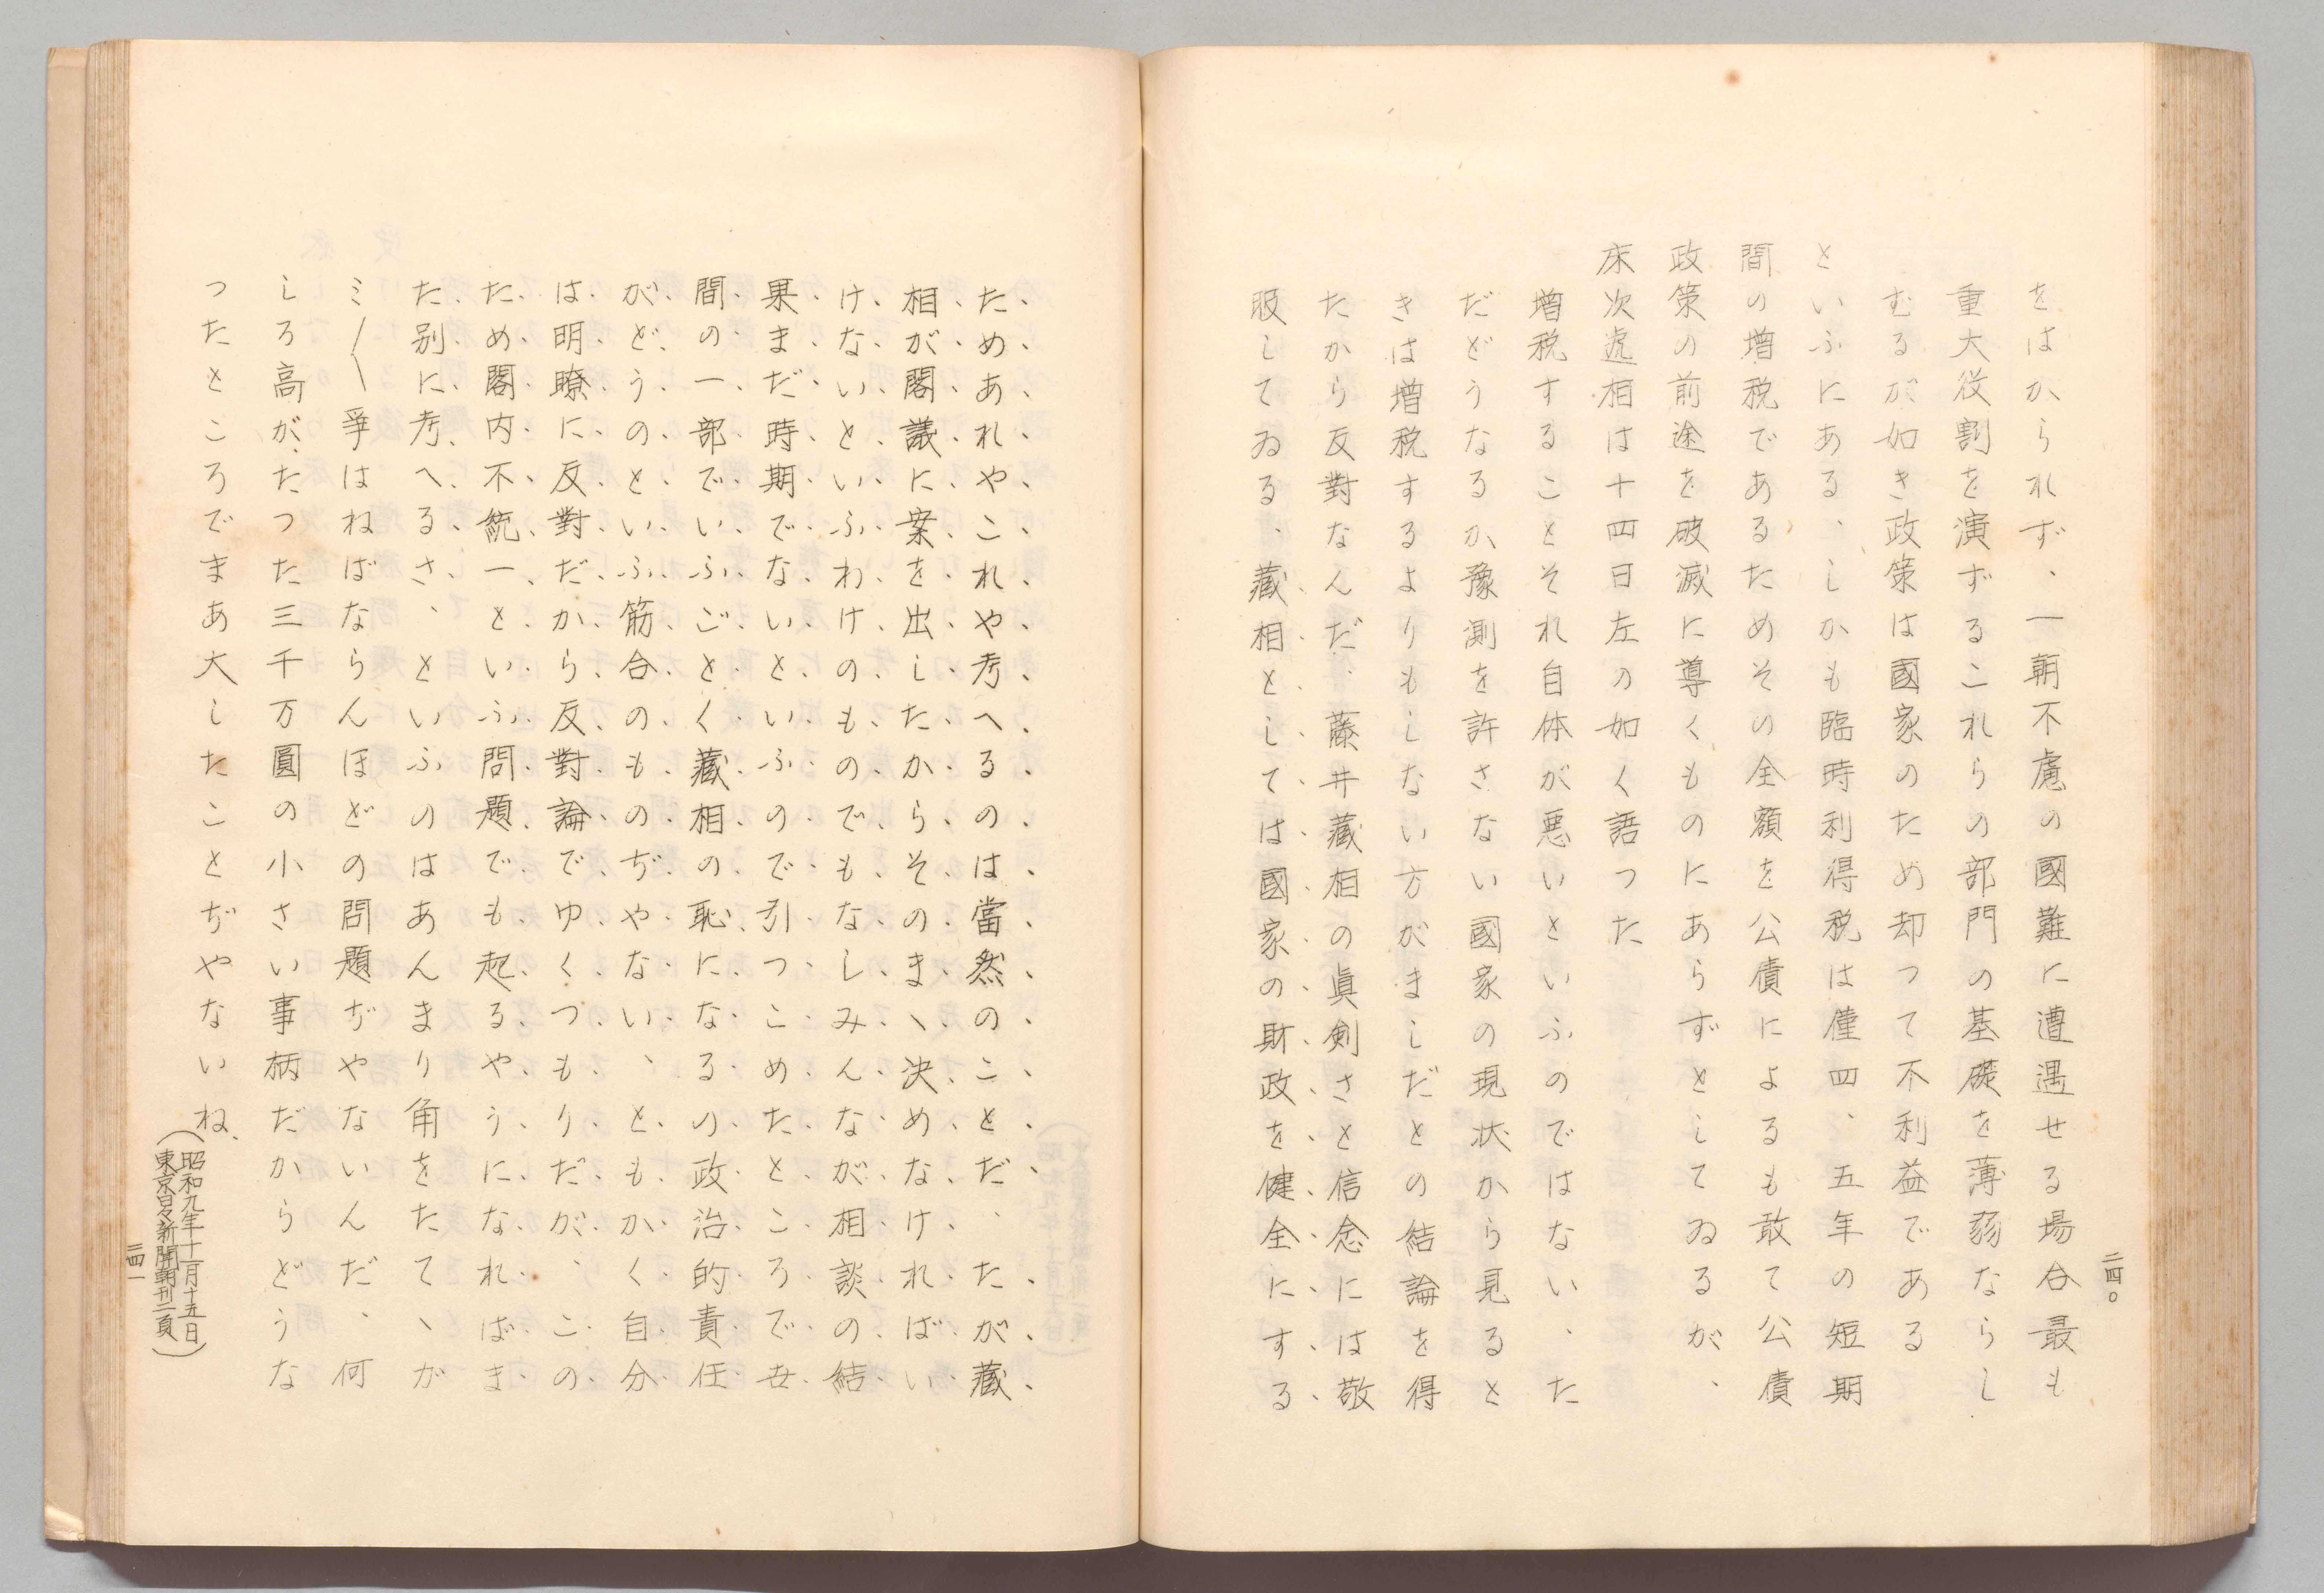 二四〇
をはかられず、一朝不慮の國難に遭遇せる場合最も
重大役割を演ずるこれらの部門の基礎を薄弱ならし
むるが如き政策は國家のため却つて不利益である
といふにある、しかも臨時利得税は僅四、五年の短期
間の増税であるためその全額を公債によるも敢て公債
政策の前途を破滅に導くものにあらずとしてゐるが、
床次逓相は十四日左の如く語つた
増税することそれ自体が悪いといふのではない、た
だどうなるか豫測を許さない國家の現状から見ると
きは増税するよりもしない方がましだとの結論を得
たから反對なんだ、藤井藏相の眞剣さと信念には敬
服してゐる、藏相としては國家の財政を健全にする
ためあれやこれや考へるのは當然のことだ、たが藏
相が閣議に案を出したからそのまヽ決めなければい
けないといふわけのものでもなしみんなが相談の結
果まだ時期でないといふので引つこめたところで世
間の一部でいふごとく藏相の恥になるの政治的責任
がどうのといふ筋合のものぢやない、ともかく自分
は明瞭に反對だから反對論でゆくつもりだが、この
ため閣内不統一といふ問題でも起るやうになればま
た別に考へるさ、といふのはあんまり角をたてヽが
ミ〳〵爭はねばならんほどの問題ぢやないんだ、何
しろ高が、たつた三千万圓の小さい事柄だからどうな
つたところでまあ大したことぢやないね、
（昭和九年十一月十五日
東京日々新聞朝刊二頁）
二四一